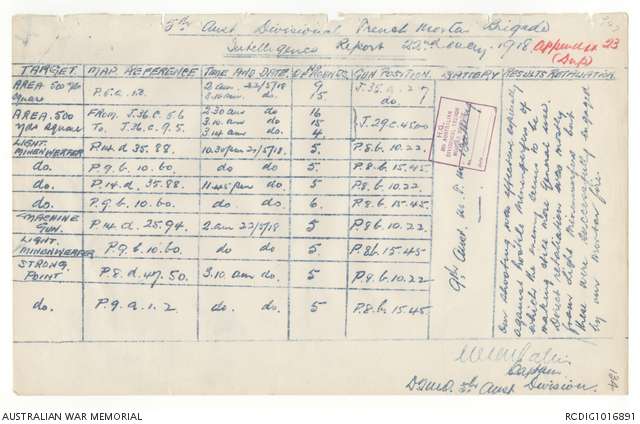 5th Aust Divisional Trench Mortar Brigade
Intelligence Report 22nd May, 1918
Appendix 23
TARGET. MAP REFERENCE TIME AND DATE. Nº ROUNDS GUN POSITION. BATTERY RESULTS RETALIATION
AREA 500 yds square P.5.a. 2am. 22/5/18 9 J.35.a.2.7
3.10am. do. 15 do.
AREA. 500 yds square From. J.36.c.5.6 2.30 am do 16 J.29.c.45.00
To. J.36.c.9.5. 3.10 am do 15
3.14 am do. 4
LIGHT MINENWERFER P.14.d. 35.88. 10.30pm 21/5/18 5. P.8.b.10.22.
do. P.9.b.10.60. do. do. 5. P.8.b.15.45.
do. P.14.d. 35.88. 11.45pm do. 5. P.8.b.10.22.
do. P.9.b.10.60. do do. 6. P.8.b.15.45
MACHINE GUN. P.14.d. 25.94. 2.am 22/5/18 5 P.8.b.10.22.
LIGHT. MINENWERFER P.9.b.10.60. do do 5 P.8b.15.45
STRONG POINT P.8.d. 47.50. 3.10. am do. 5 P.8.b.10.22
do. P.9.a.1.2. do. do. 5 P.8.b.15.45
9th. Aust. M.T.M. Battery
Our shooting was effective especially
against mobile minenwerfers of
which the enemy seems to be
making still more general use.
Direct retaliation was mostly
from Light Minenwerfers but
these were successfully engaged
by our mortar fire.
Captain
D.T.M.O. 5th Aust Division.
134
AUSTRALIAN WAR MEMORIAL
RCDIG1016891